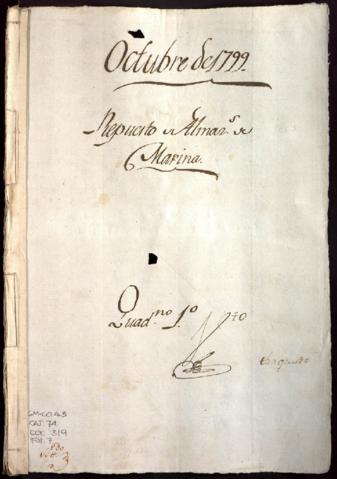 Octubre de 1799.
Repuesto de Almaz.s de
Marina.
Quad.no 1.o
GM-CO.43
CAJ. 74
DOC. 319
FOL. 7